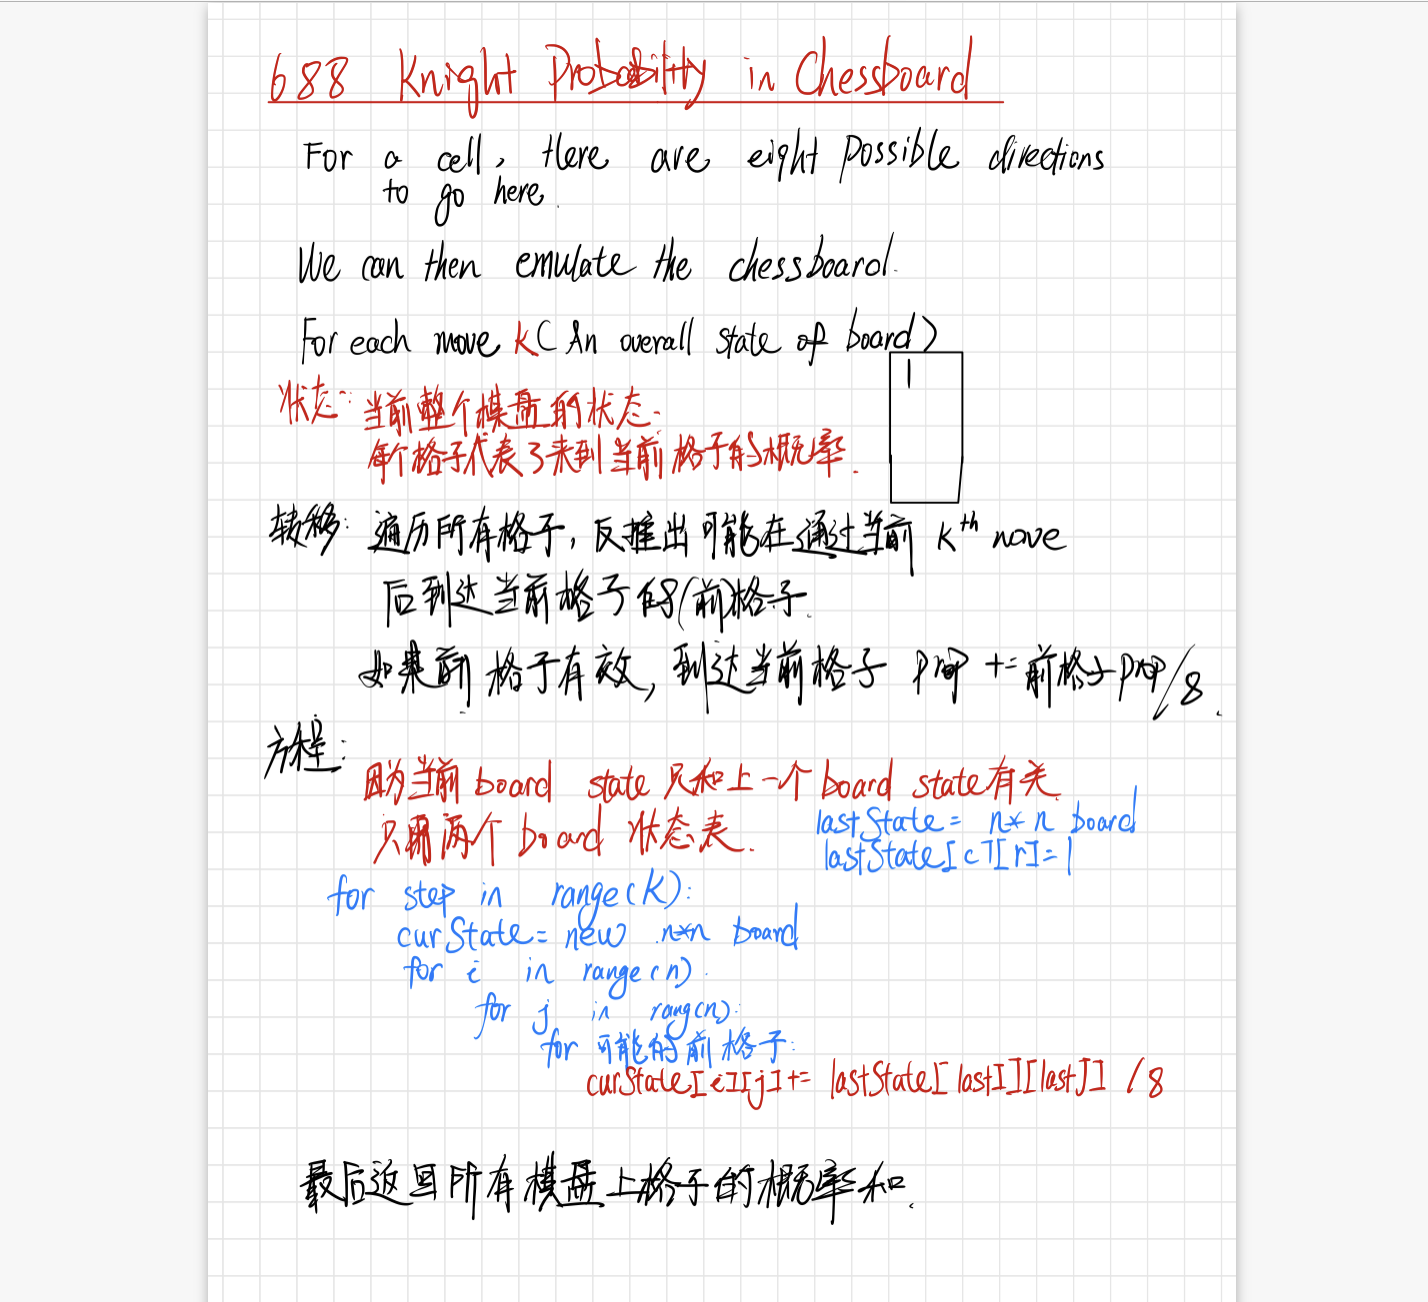 688 Knight Probability in Chessboard
For a cell, there are eight possible directions
to go here.
We can then emulate the chessboard.
For each move k( An overall state of board)
1
状态: 当前整个棋盘的状态.
每个格子代表了来到当前格子的概率.
转移: 遍历所有格子, 反推出可能在通过当前 kth move
后到达当前格子的(前)格子.
如果前格子有效, 到达当前格子 prop += 前格子prop/8.
方程:
因为当前 board state 只和上一个 board state有关
只需两个 board 状态表.
lastState = n* n board
lastState[c][r]=1
for step in range(k):
curState= new n*n board
for i in range(n).
for j in rang(n):
for 可能的前格子:
curState[i][j]+= lastState[lastI][lastJ] /8
最后返回所有棋盘上格子的概率和.